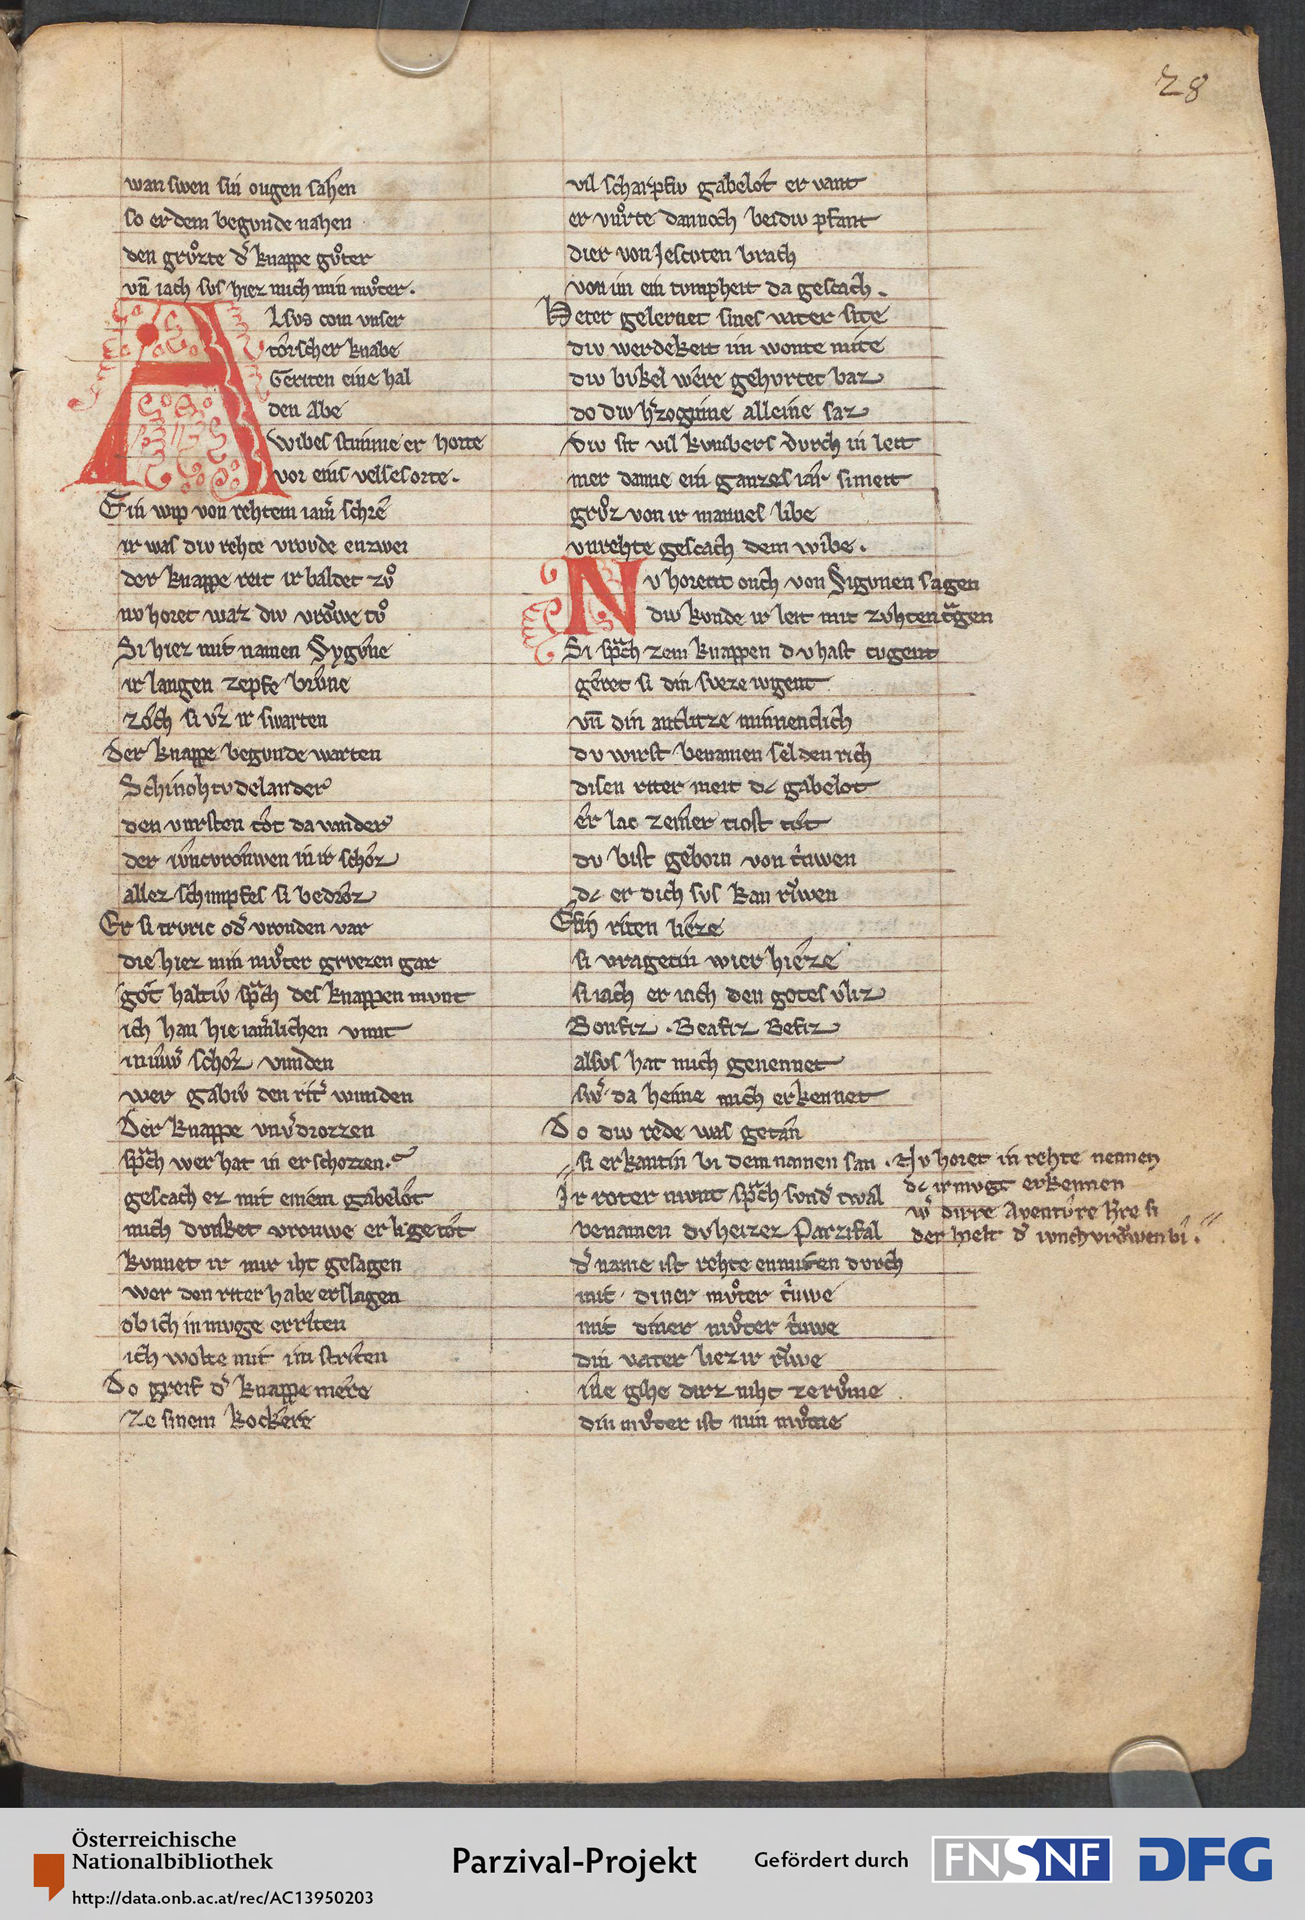 28
wan swen sin ougen sahen
so er dem begvnde nahen
den grvͦzte dˢ knappe gvͦter
vn̄ iach svs hiez mich min mvͦter.
ALsvs com vnser
torscher knabe
Geriten eine hal
den Abe
wibes stimme er horte
vor eins velses orte.
Ein wip von rehtem iamˢ schre
ir was div rehte vrovde enzwei
der knappe reit ir baldet zvͦ
nv horet waz div vrowe tvͦ
Si hiez mit namen Sygvne
ir langen zepfe brvne
zoch si vz ir swarten
Der knappe begvnde warten
Schinohtvdelander
den vursten tot da vander
der ivncvrouwen in ir schoz
allez schimpfes si bedroz
Er si trvric odˢ vrouden var
die hiez min mvͦter grvezen gar
got haltiv sprach des knappen mvnt
ich han hie iamˢlichen vunt
in iuwˢ schoz vunden
wer gabiv den ritˢ wunden
Der knappe vnvˢdrozzen
sprach wer hat in erschozzen.
gescach ez mit einem gabelot
mich dvnket vrouwe er lige tot
kvnnet ir mir iht gesagen
wer den riter habe erslagen
ob ich in mvge erriten
ich wolte mit im striten
Do greif dˢ knappe mere
ze sinem kockere
vil scharpfiv gabelot er vant
er vuͦrte dannoch beidiv pfant
dier von Jescvten brach
von im ein tvmpheit da gescach.
Heter gelernet sines vater site
div werdekeit im wonte mite
div bvkel were gehvrtet baz
do div hˢzoginne alleine saz
Div sit vil kvmbers dvrch in leit
mer danne ein ganzes iar si meit
grvͦz von ir mannes libe
vnrehte gescach dem wibe.
Nv horent ouch von Sigvnen sagen
div kvnde ir leit mit zvhten tragen
Si sprach zem knappen dv hast tvgent
geret si din sveze ivgent
vn̄ din antlitze minnenclich
dv wirst benamen selden rich
disen riter meit dc gabelot
er lac ze einer tiost tot
dv bist geborn von triuwen
dc er dich svs kan riuwen
E sin riten lieze
si vragetin wier hieze
si iach er iach den gotes vliz
Bonfiz . Beafiz Befiz
alsvs hat mich genennet
swˢ da heime mich erkennet
Do div rede was getan
si erkantin bi dem namen san . Nv horet in rehte nennen
dc ir mvgt erkennen
wˢ dirre Aventivre hˢre si
der hielt dˢ ivnchvrowen bi.
Ir roter mvnt sprach svndˢ twal
benamen dv heizez Parzifal
dˢ name ist rehte enmitten dvrch
mit diner mvͦter triuwe
mit diner mvͦter triuwe
din vater liez ir riuwe
ine gihe dirz niht ze rvͦme
din mvͦter ist min mvͦme
Österreichische
Nationalbibliothek
http://data.onb.ac.at/rec/AC13950203
Parzival-Projekt
Gefördert durch
FNSNF
DFG